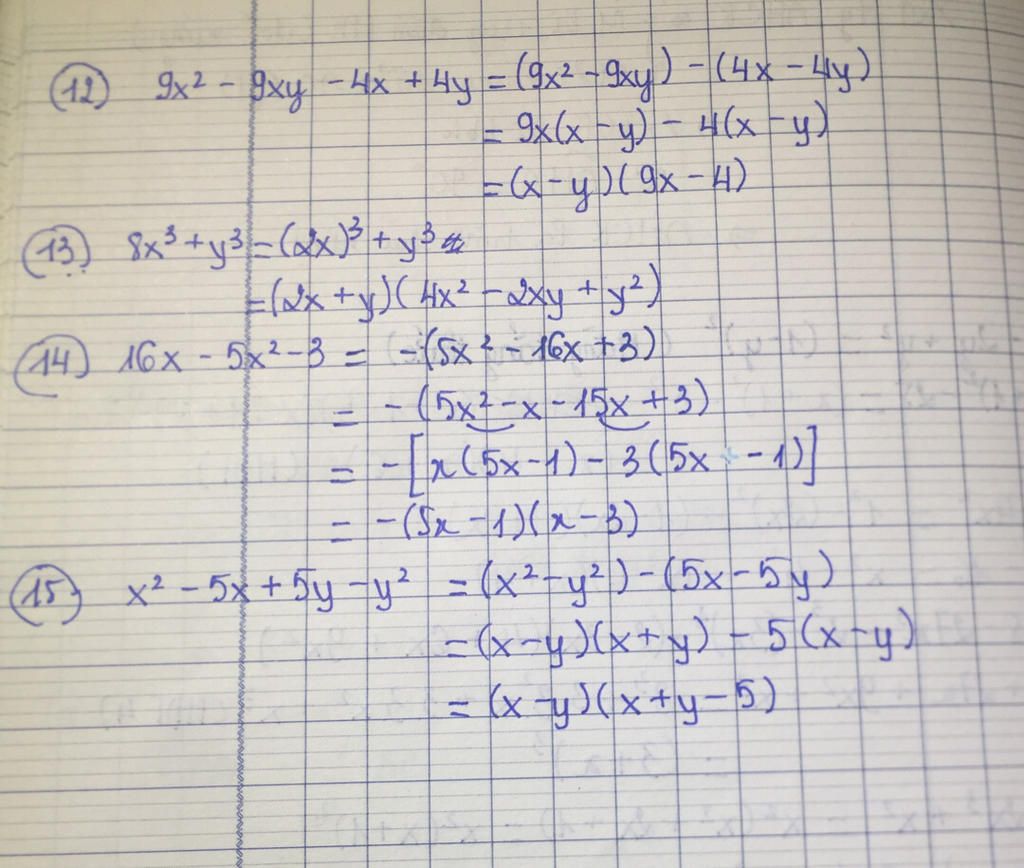 (12) 9x² - 9xy - 4x + 4y = (9x² - 9xy) - (4x - 4y)
= 9x(x - y) - 4(x - y)
= (x - y)(9x - 4)
(13) 8x³ + y³ = (2x)³ + y³
= (2x + y)(4x² - 2xy + y²)
(14) 16x - 5x² - 3 = -(5x² - 16x + 3)
= -(5x² - x - 15x + 3)
= -[x(5x - 1) - 3(5x - 1)]
= -(5x - 1)(x - 3)
(15) x² - 5x + 5y - y² = (x² - y²) - (5x - 5y)
= (x - y)(x + y) - 5(x - y)
= (x - y)(x + y - 5)